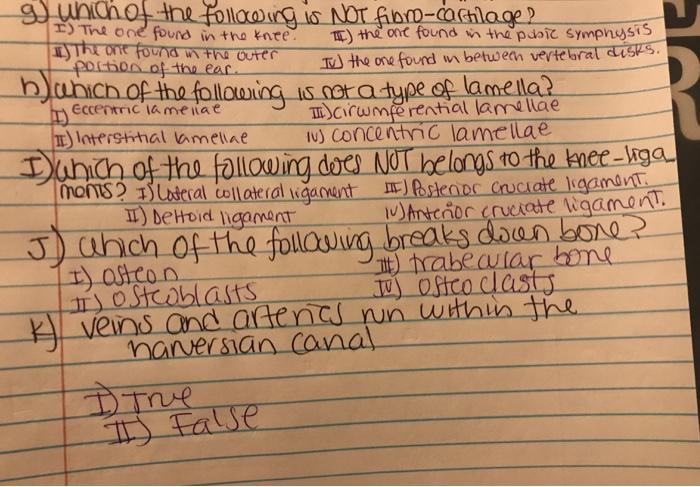 g) which of the following is NOT fibro-cartilage?
I) The one found in the knee. III) the one found in the pubic symphysis
II) The one found in the outer portion of the ear. IV) the one found in between vertebral disks.
h) which of the following is not a type of lamella?
I) Eccentric lamellae III) circumferential lamellae
II) Interstitial lamellae IV) concentric lamellae
I) which of the following does NOT belongs to the knee-liga
ments? I) Lateral collateral ligament III) Posterior cruciate ligament.
II) Deltoid ligament IV) Anterior cruciate ligament.
J) which of the following breaks down bone?
I) osteon III) trabecular bone
II) osteoblasts IV) osteoclasts
K) veins and arteries run within the
harversian canal
I) True
II) False